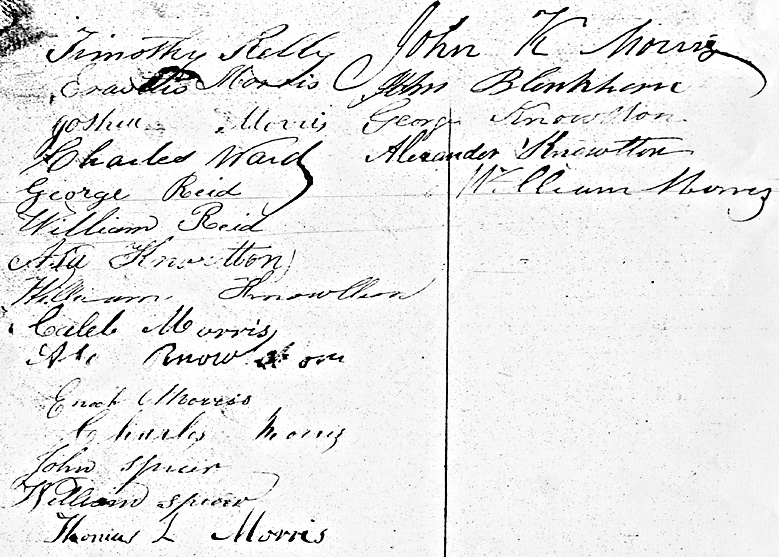 Timothy Kelly
Erastus Morris
Joshua Morris
Charles Ward
George Reid
William Reid
Asa Knowlton
William Knowlton
Caleb Morris
Enoch Morris
Charles Morris
John Spicer
William Spicer
Thomas L Morris
John K Morris
John Blenkhorn
George Knowlton
Alexander Knowlton
William Morris